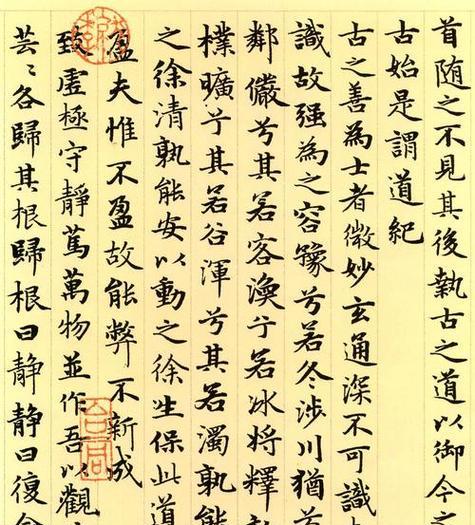 首随之不見其後執古之道以御今之
古始是謂道紀
古之善為士者微妙玄通深不可識
識故强為之容豫兮若冬涉川猶
鄰儼兮其若客渙兮若冰將釋
樸曠兮其若谷渾兮其若濁孰能
之徐清孰能安以動之徐生保此道
盈夫惟不盈故能弊不新成
致虛極守靜篤萬物並作吾以觀
芸〻各歸其根歸根曰靜靜曰復